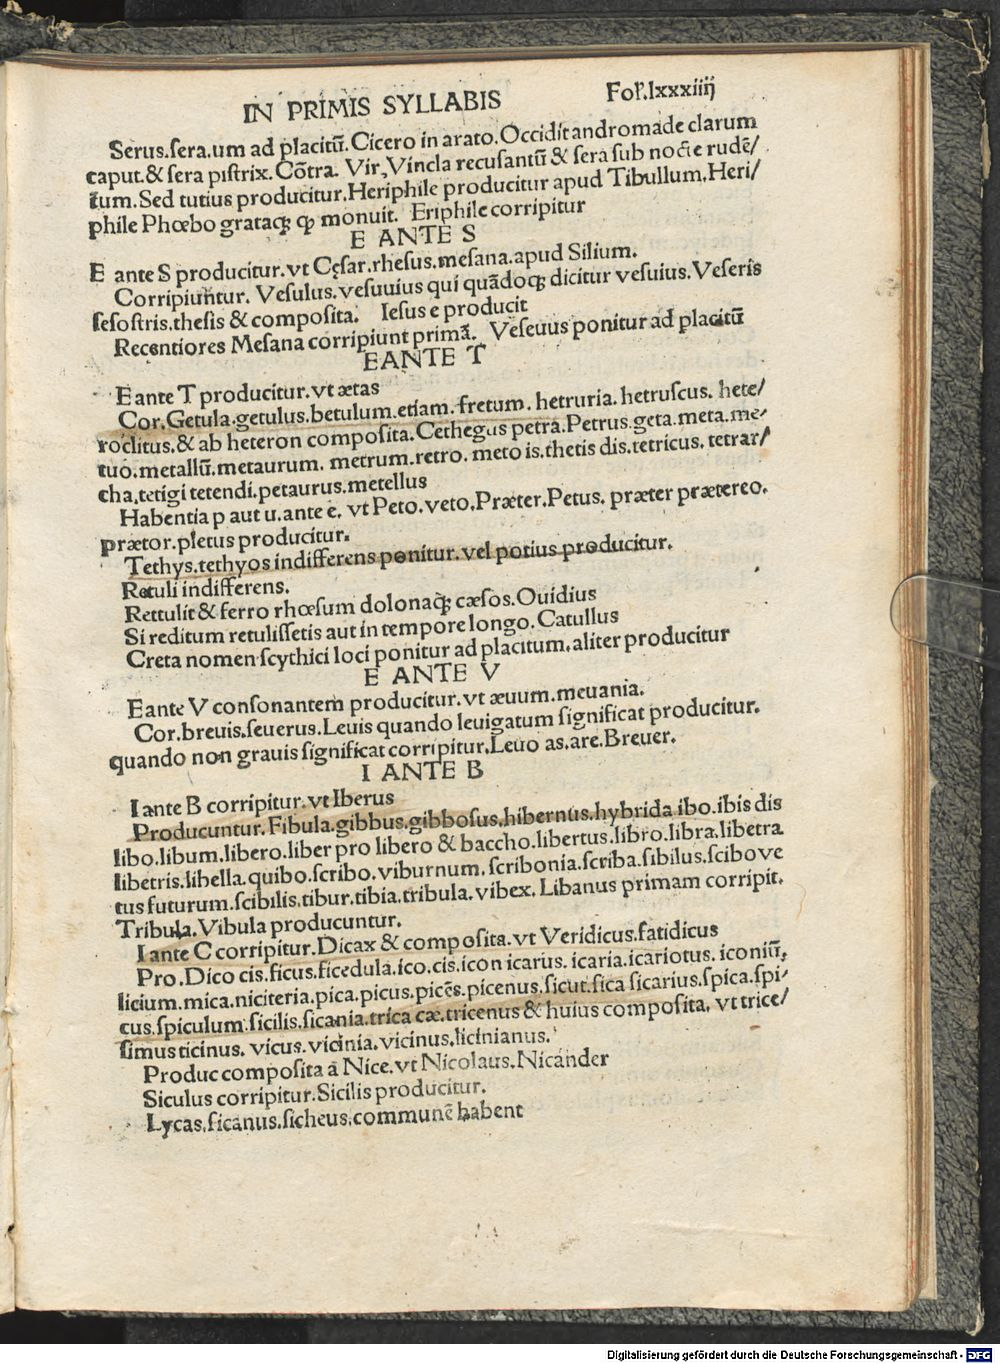 IN PRIMIS SYLLABIS Fol'.lxxxiiij
Serus.sera.um ad placitũ.Cicero in arato.Occidit andromade clarum
caput.& sera pistrix.Cõtra. Vir,Vincla recusantũ & sera sub nocte rudẽ/
tum.Sed tutius producitur.Heriphile producitur apud Tibullum,Heri/
phile Phœbo grataq; monuit. Eriphile corripitur
E ANTE S
E ante S producitur.vt Cęsar.rhesus.mesana.apud Silium.
Corripiuntur. Vesulus.vesuuius qui quãdoq; dicitur vesuius.Veseris
sesostris.thesis & composita. Iesus e producit
Recentiores Mesana corripiunt primã. Veseuus ponitur ad placitũ
E ANTE T
E ante T producitur.vt ætas
Cor.Getula.getulus.betulum.etiam.fretum.hetruria.hetruscus.hete/
roclitus.& ab heteron composita.Cethegus petra.Petrus.geta.meta.me/
tuo.metallũ.metaurum.metrum.retro.meto is.thetis dis.tetricus.tetrar/
cha.tetigi tetendi.petaurus.metellus
Habentia p aut u.ante e. vt Peto.veto.Præter.Petus. præter prætereo.
prætor.pletus producitur.
Tethys.tethyos indifferens ponitur.vel potius producitur.
Retuli indifferens.
Rettulit & ferro rhœsum dolonaq; cæsos.Ouidius
Si reditum retulissetis aut in tempore longo.Catullus
Creta nomen scythici loci ponitur ad placitum.aliter producitur
E ANTE V
E ante V consonantem producitur.vt æuum.meuania.
Cor.breuis.seuerus.Leuis quando leuigatum significat producitur.
quando non grauis significat corripitur.Leuo as.are.Breuer.
I ANTE B
I ante B corripitur.vt Iberus
Producuntur.Fibula.gibbus.gibbosus.hibernus.hybrida ibo.ibis dis
libo.libum.libero.liber pro libero & baccho.libertus.libro.libra.libetra
libetris.libella.quibo.scribo.viburnum.scribonia.scriba.sibilus.scibo ve
tus futurum.scibilis.tibur.tibia.tribula.vibex. Libanus primam corripit.
Tribula.Vibula producuntur.
I ante C corripitur.Dicax & composita.vt Veridicus.fatidicus
Pro.Dico cis.ficus.ficedula.ico.cis.icon icarus.icaria.icariotus.iconiũ.
licium.mica.niciteria.pica.picus.picẽs.picenus.sicut.sica sicarius.spica.spi/
cus.spiculum.sicilis.sicania.trica cæ.tricenus & huius composita. vt trice/
simus ticinus. vicus.vicinia.vicinus.licinianus.
Produc composita ã Nice.vt Nicolaus.Nicander
Siculus corripitur.Sicilis producitur.
Lycas.sicanus.sicheus.communẽ habent
Digitalisierung gefördert durch die Deutsche Forschungsgemeinschaft - DFG